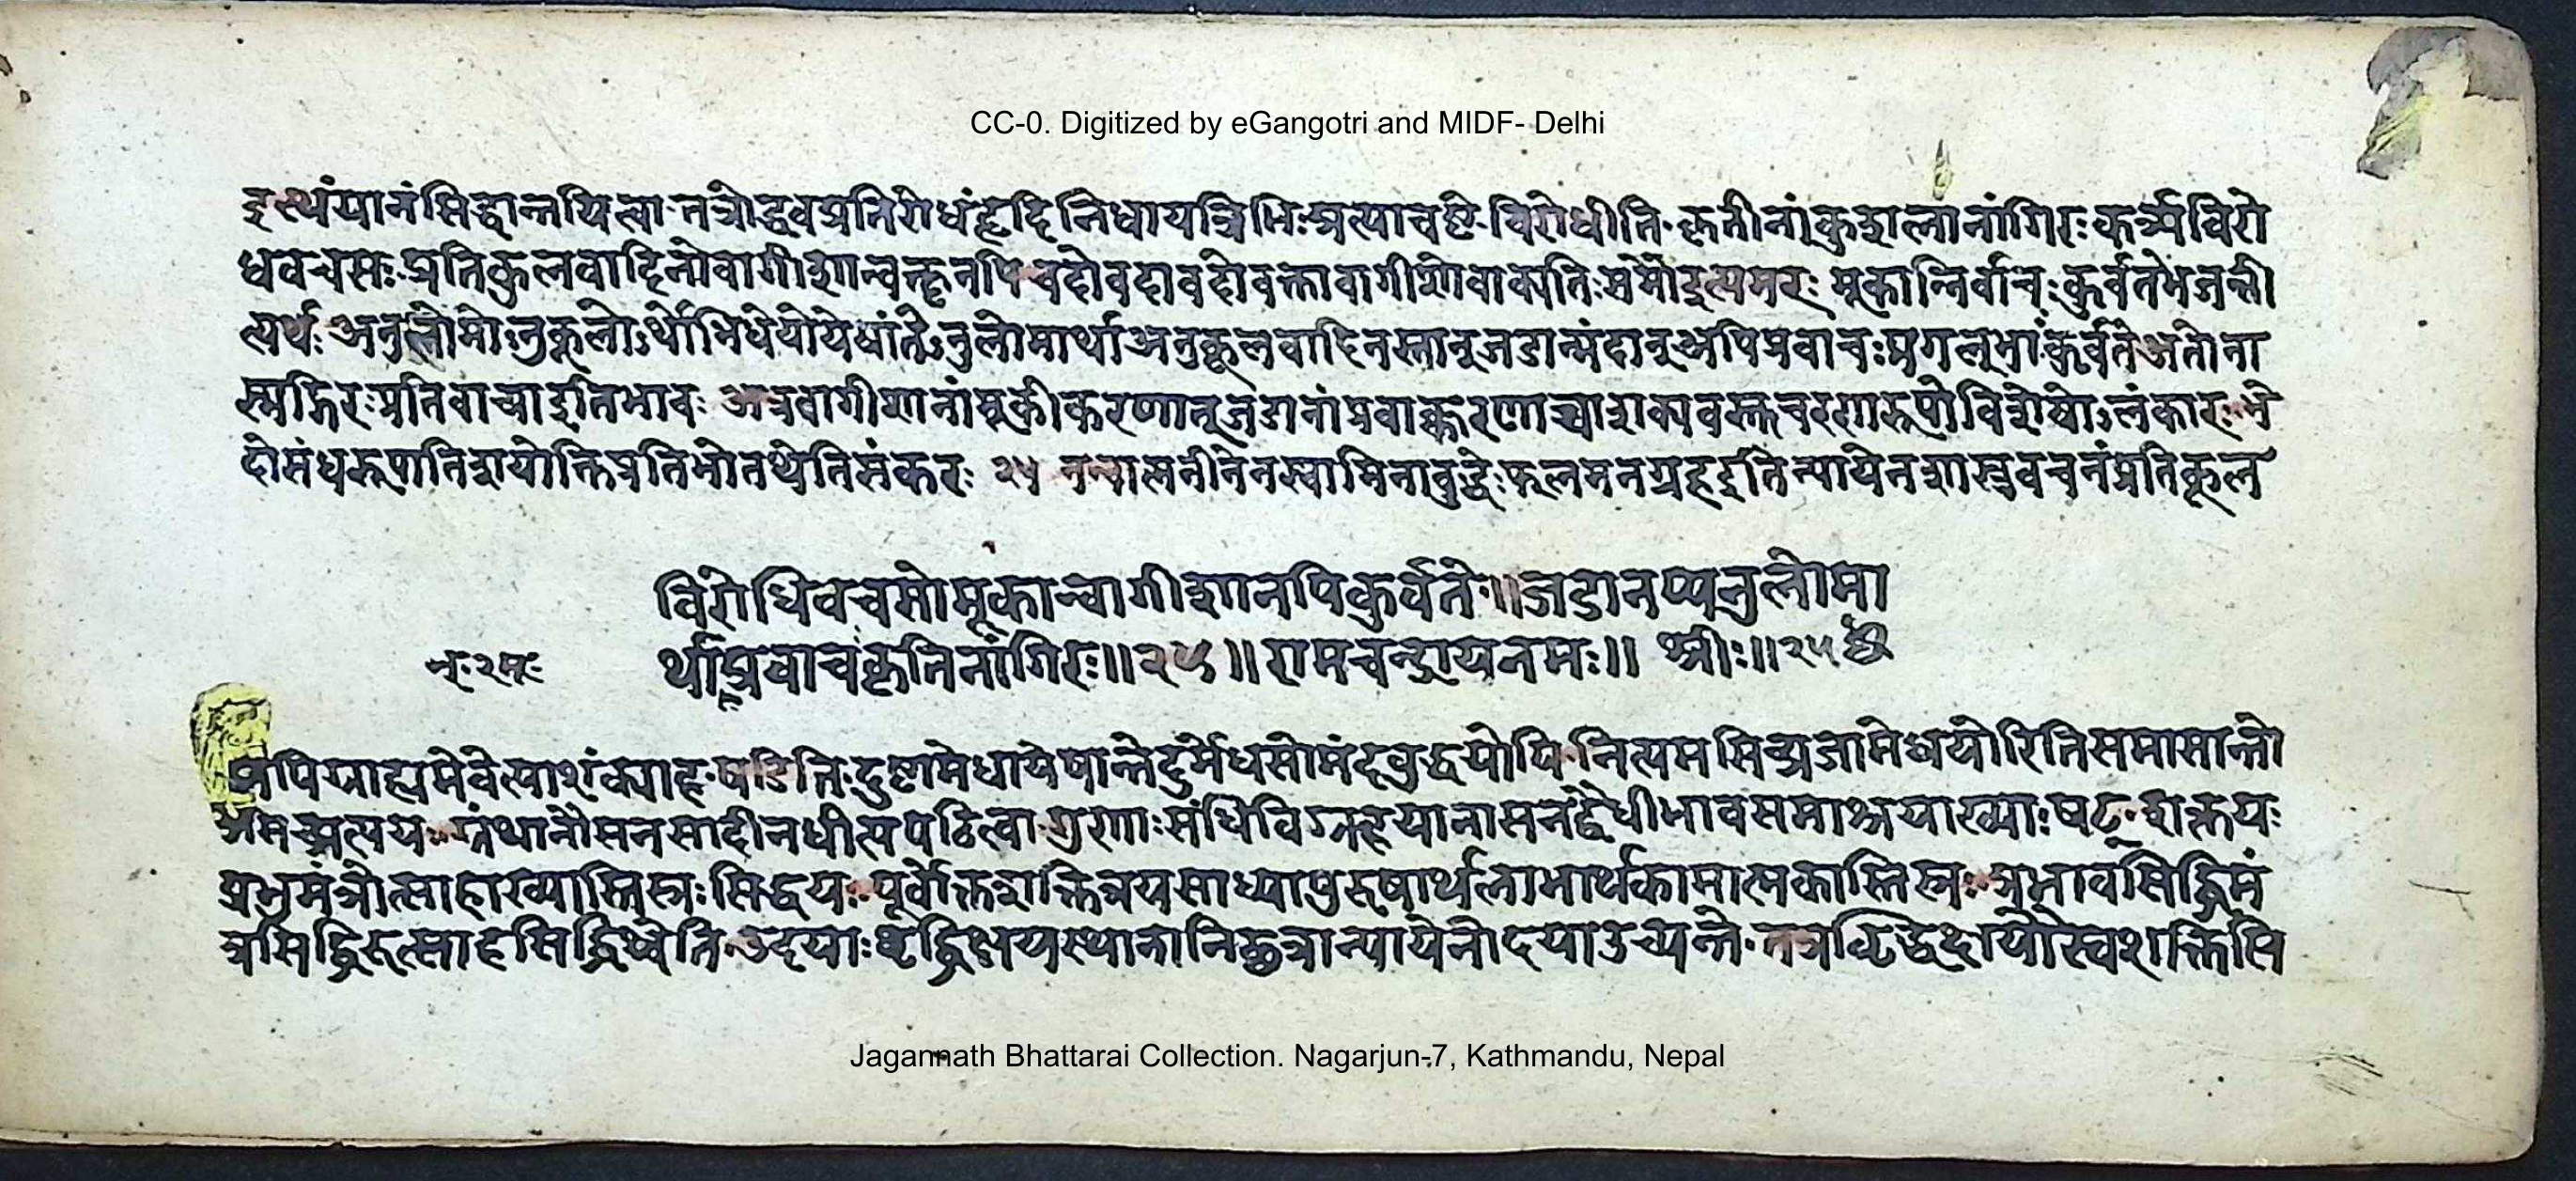 CC-0. Digitized by eGangotri and MIDF- Delhi
इत्थंयानंसिद्धान्तयित्वा तत्रोद्धवप्रतिरोधंहृदिनिधायत्रिभिःप्रत्याचष्टे विरोधीति कृतीनांकुशलानांगिरः कर्त्र्यविरो
धवचसः प्रतिकुलवादिनोवागीशान्वक्तृनपि वदोवदावदोवक्तावागीशोवाक्पतिःसमौइत्यमरः मूकान्निर्वाचःकुर्वतेभजन्ती
त्यर्थः अनुलोमोऽनुकूलोऽर्थोभिधेयोयेषांतेऽनुलोमार्थाअनुकूलवादिनस्तानूजडान्मंदानूअपिप्रवाचःप्रगल्भांकुर्वतेअतोना
स्मद्गिरःप्रतिवाच्याइतिभावः अत्रवागीशानांमूकीकरणानूजडानांप्रवाक्करणाच्चाशक्यवस्तुचरणारूपोविशेषोऽलंकारः भे
देसंधरूपातिशयोक्तिप्रतिभोतथेतिसंकरः २५ नन्वालनीतेनस्वामिनाबुद्धेःफलमनग्रहइतिन्यायेनशास्त्रवचनंप्रतिकूल
विरोधिवचसोमूकान्वागीशानपिकुर्वते॥जडानप्यनुलोमा
र्थाप्रवाचःकृतिनांगिरः॥२५॥रामचन्द्रायनमः॥ श्रीः॥२५
मपिग्राह्यमेवेत्याशंक्याह षडिति दुष्टामेधायेषान्तेदुर्मेधसोमंदबुद्धयोपि नित्यमसिच्प्रजामेधयोरितिसमासान्तो
असिच्प्रत्ययः ग्रंथानौसनसादीनधीत्यपठित्वा गुरणाःसंधिविग्रहयानासनद्वैधीभावसमाश्रयाख्याःषट् शक्तयः
प्रभुमंत्रोत्साहाख्यास्तिस्त्रःसिद्धयः पूर्वोक्तशक्तित्रयसाध्यापुरूषार्थलाभार्थकामात्मकास्तिस्त्रः प्रभावसिद्धिमं
त्रसिद्धिरूत्साहसिद्धिश्चेति उदयाःवृद्धिक्षयस्थानानिछत्रान्यायेनोदयाउच्यन्ते तत्रवृद्धिदायोस्वशक्तिसि
Jagannath Bhattarai Collection. Nagarjun-7, Kathmandu, Nepal